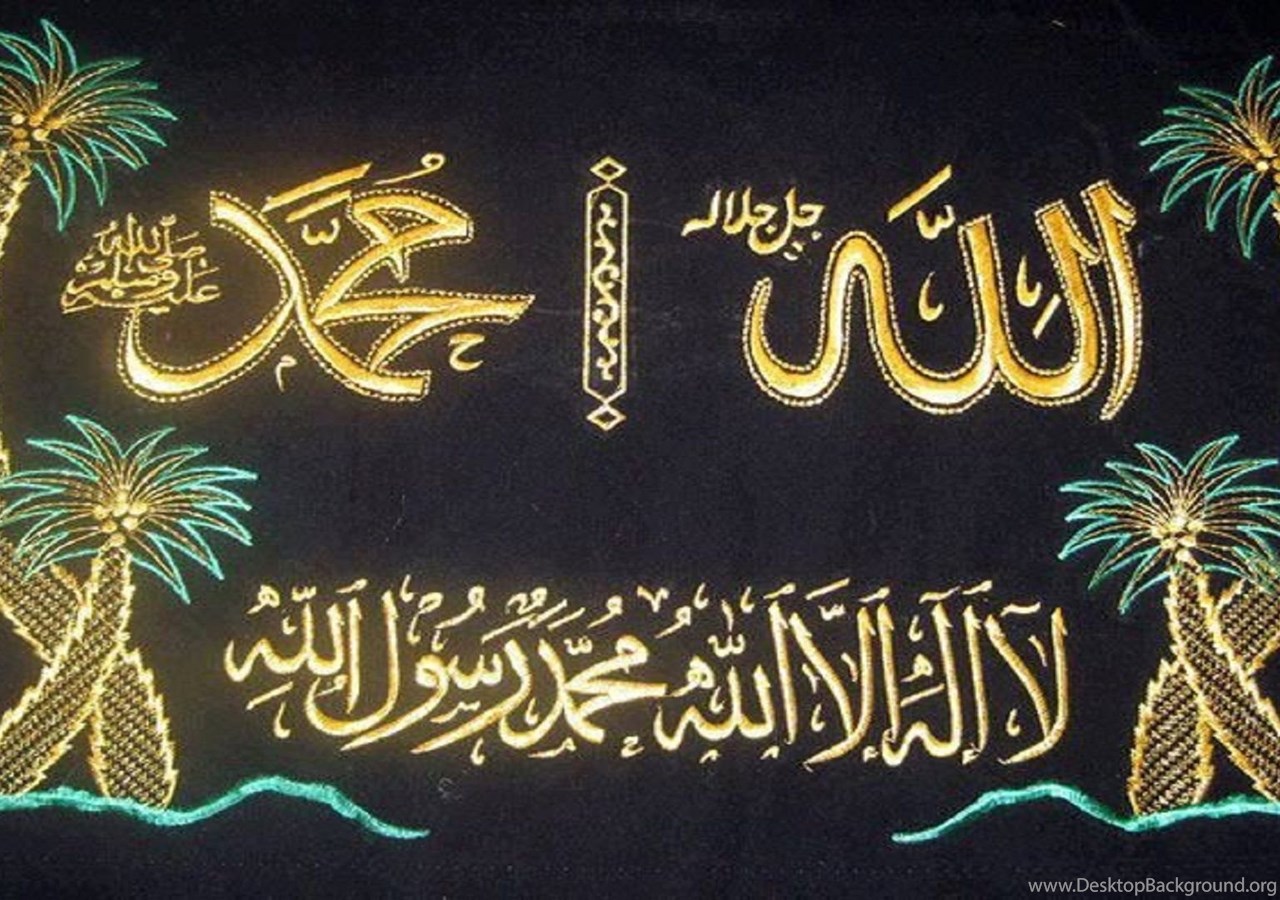 الله جل جلاله
محمد صلى الله عليه وسلم
لَا إِلٰهَ إِلَّا اللّٰهُ مُحَمَّدٌ رَسُولُ اللّٰهِ
www.DesktopBackground.org